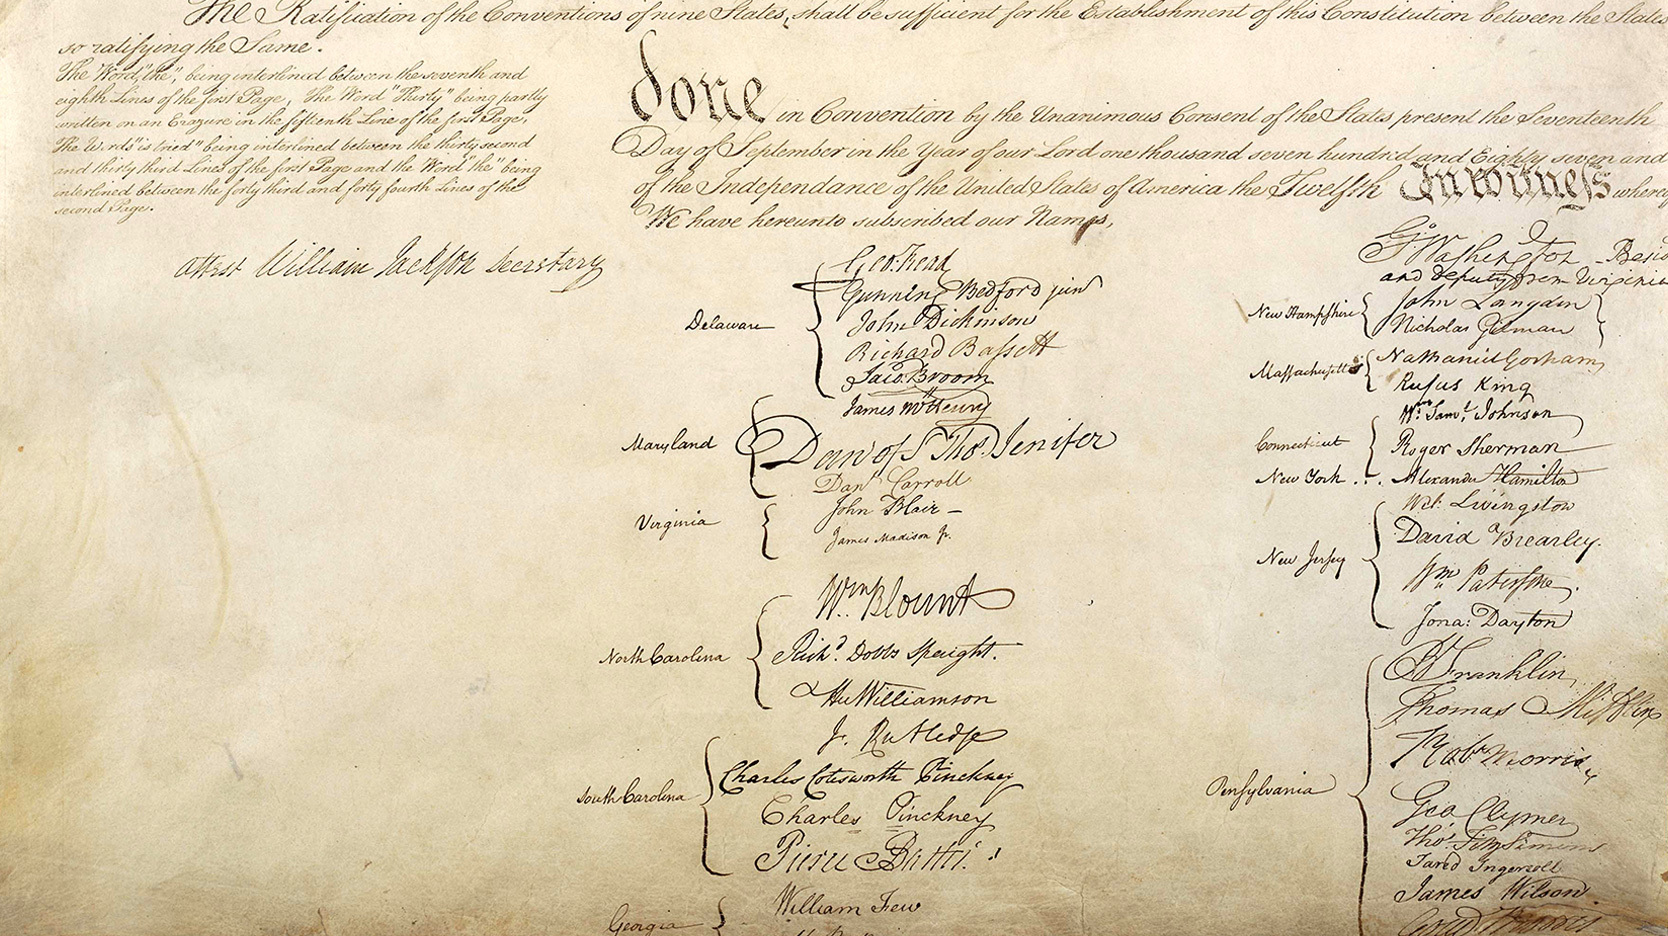 The Ratification of the Conventions of nine States, shall be sufficient for the Establishment of this Constitution between the States
so ratifying the Same.
The Word, "the", being interlined between the seventh and
eighth Lines of the first Page, The Word "Thirty" being partly
written on an Erazure in the fifteenth Line of the first Page,
The Words "is tried" being interlined between the thirty second
and thirty third Lines of the first Page and the Word "the" being
interlined between the forty third and forty fourth Lines of the
second Page.
attest William Jackson Secretary
done in Convention by the Unanimous Consent of the States present the Seventeenth
Day of September in the Year of our Lord one thousand seven hundred and Eighty seven and
of the Independance of the United States of America the Twelfth In witness whereof
We have hereunto subscribed our Names,
Delaware
Geo: Read
Gunning Bedford jun
John Dickinson
Richard Bassett
Jaco: Broom
Maryland
James McHenry
Dan of St Thos. Jenifer
Danl Carroll
Virginia
John Blair —
James Madison Jr.
North Carolina
Wm Blount
Richd. Dobbs Spaight.
Hu Williamson
South Carolina
J. Rutledge
Charles Cotesworth Pinckney
Charles Pinckney
Pierce Butler.
Georgia
William Few
Go. Washington — Presid
and deputy from Virginia
New Hampshire
John Langdon
Nicholas Gilman
Massachusetts
Nathaniel Gorham
Rufus King
Connecticut
Wm. Saml. Johnson
Roger Sherman
New York . . . Alexander Hamilton
New Jersey
Wil: Livingston
David Brearley.
Wm Paterson.
Jona: Dayton
Pensylvania
B Franklin
Thomas Mifflin
Robt Morris
Geo. Clymer
Thos. FitzSimons
Jared Ingersoll
James Wilson
Gouv Morris